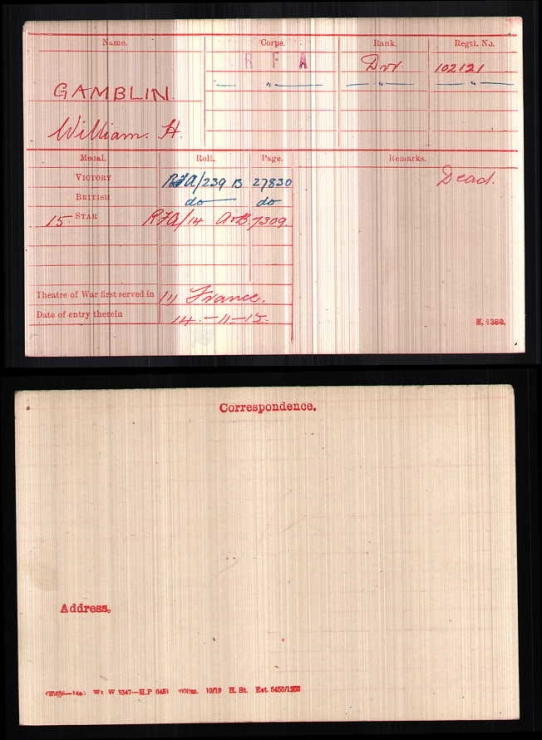 Name. Corps. Rank. Regtl. No.
R F A Dvr 102121
GAMBLIN. — " — — " — — " —
William. H.
Medal. Roll. Page. Remarks.
VICTORY RFA/239 B 27830 Dead.
BRITISH do do
15 STAR RFA/14 A&B 7309.
Theatre of War first served in (1) France.
Date of entry therein 14-11-15.
K. 1380.
Correspondence.
Address.
W 5347—H.P 10/19 H. St.